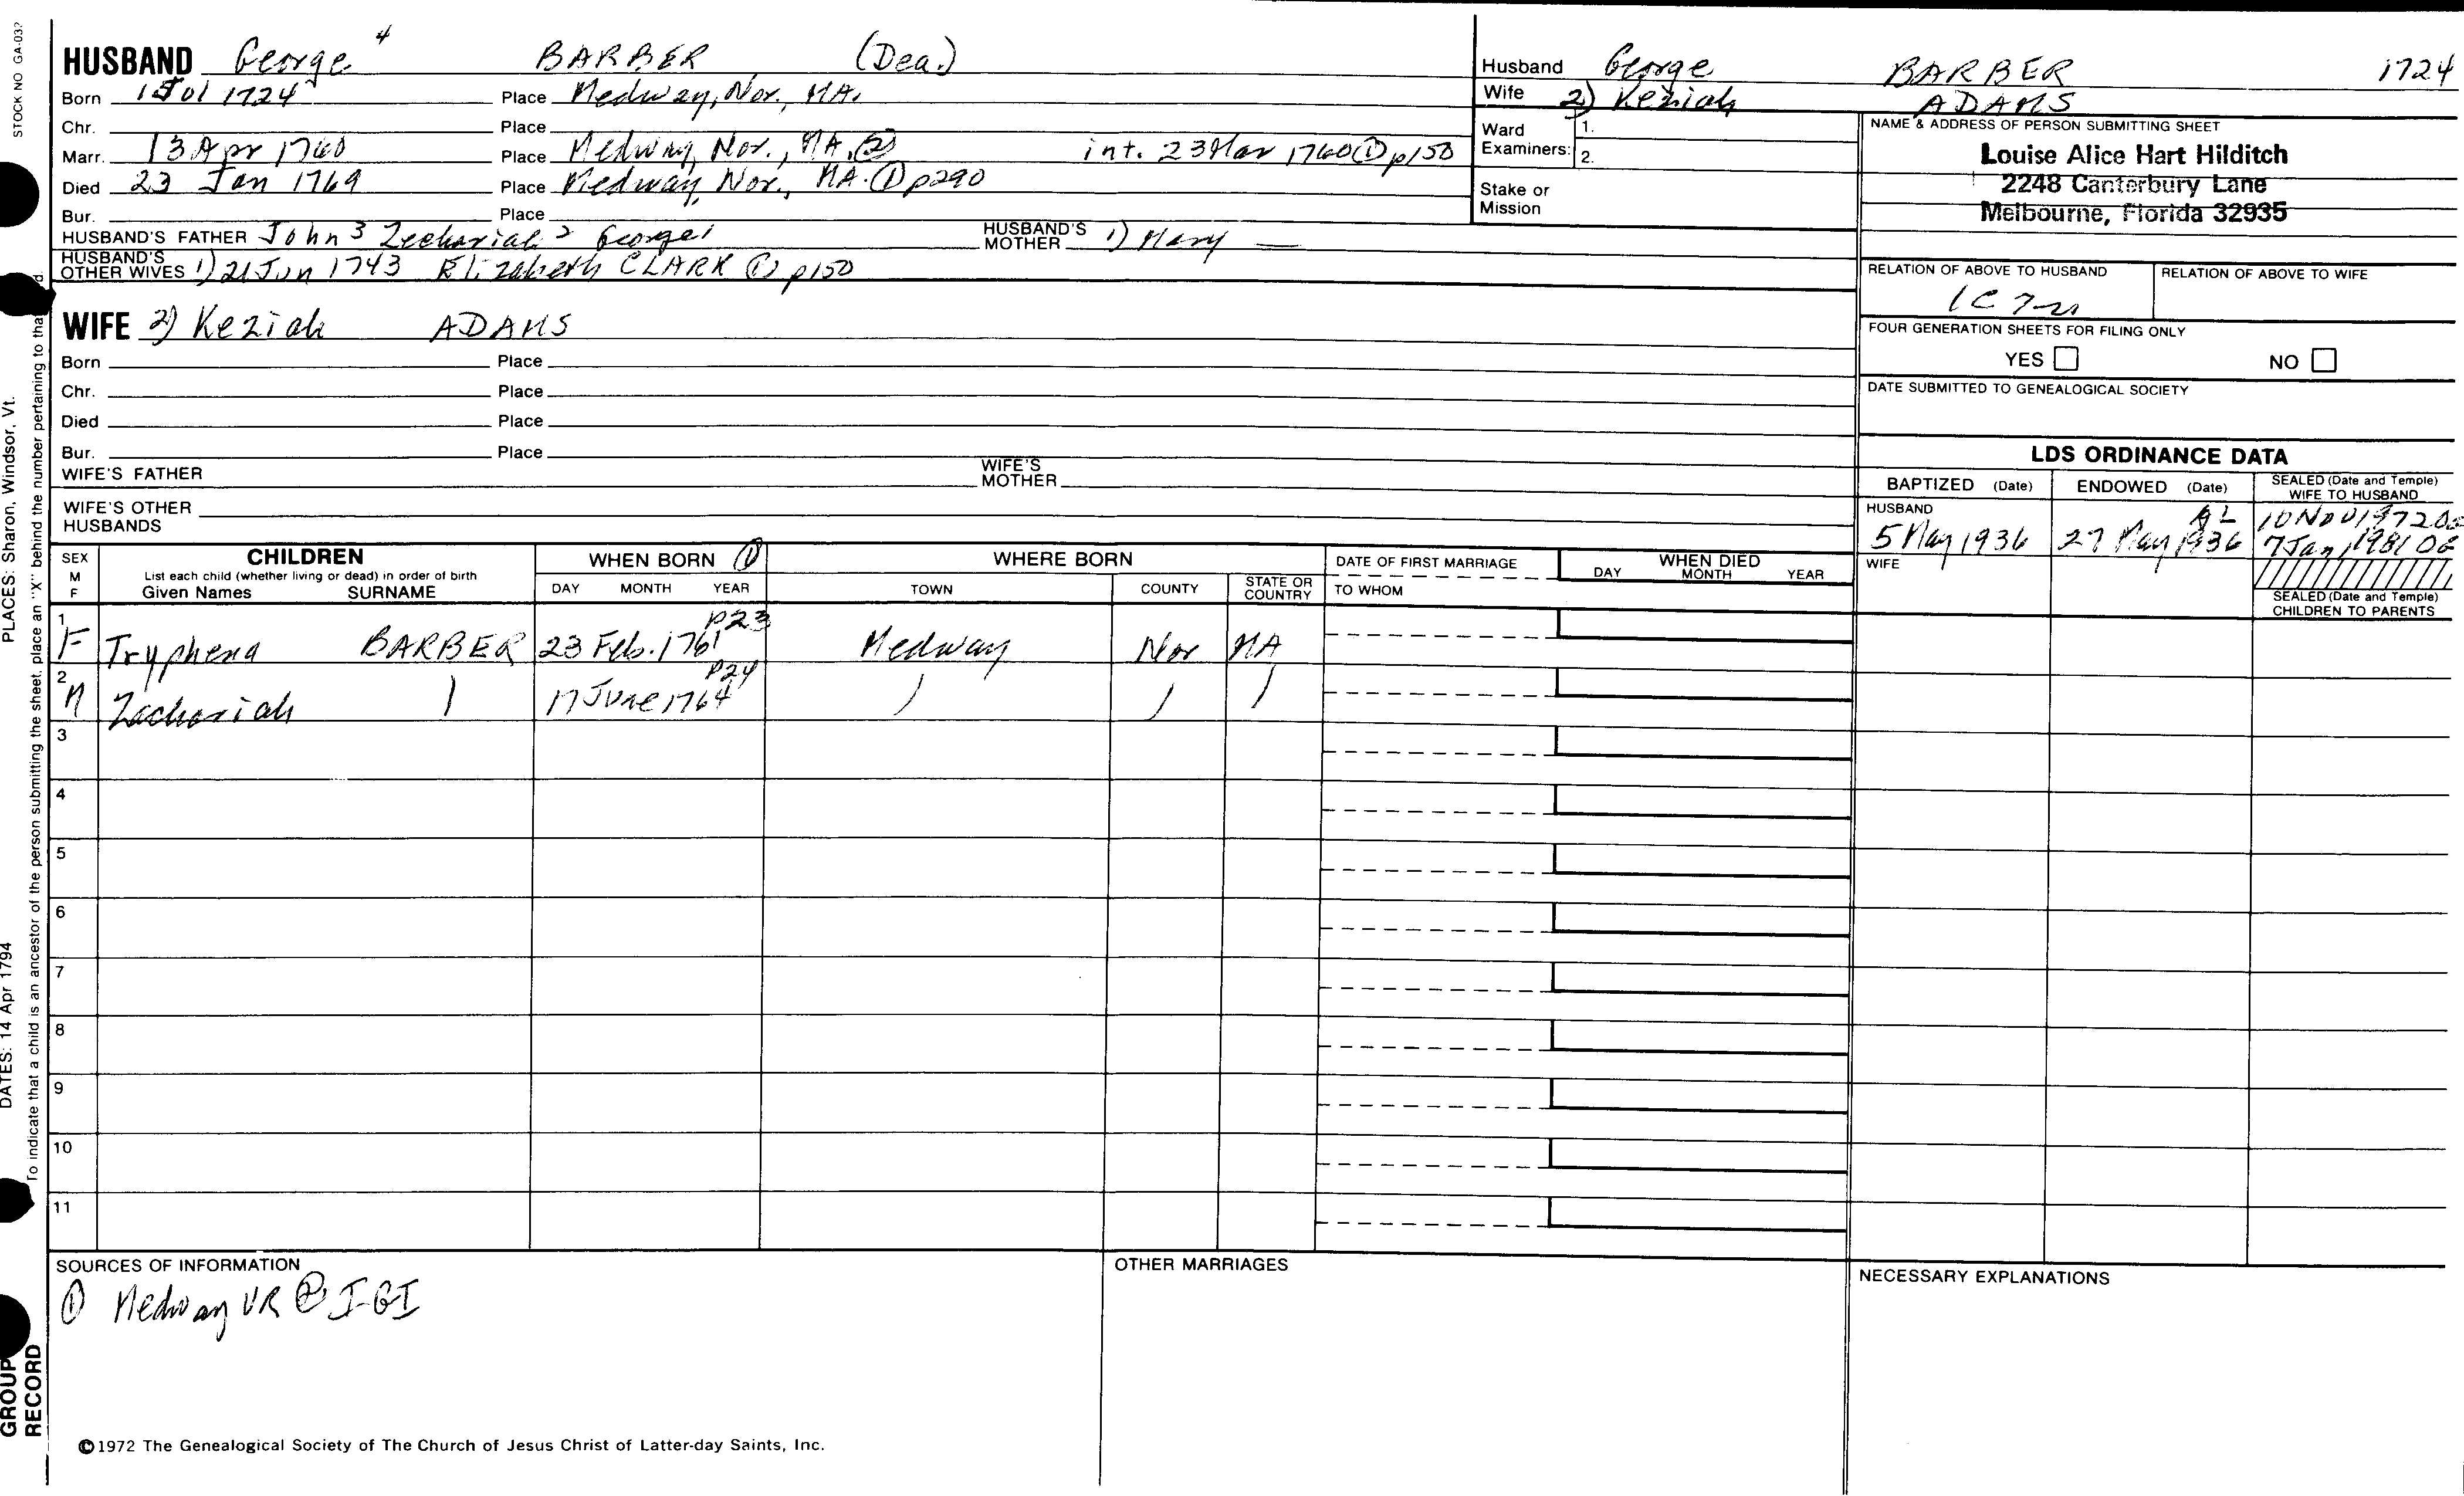 STOCK NO GA-032
HUSBAND George 4 BARBER (Dea.)
Born 1 Jul 1724 Place Medway, Nor., MA.
Chr. Place
Marr. 13 Apr 1760 Place Medway, Nor., MA. ② int. 23 Mar 1760 ① p150
Died 23 Jan 1769 Place Medway, Nor., MA. ① p290
Bur. Place
HUSBAND'S FATHER John 3 Zechariah 2 George 1 HUSBAND'S MOTHER 1) Mary —
HUSBAND'S OTHER WIVES 1) 21 Jun 1743 Elizabeth CLARK ① p150
WIFE 2) Keziah ADAMS
Born Place
Chr. Place
Died Place
Bur. Place
WIFE'S FATHER WIFE'S MOTHER
WIFE'S OTHER HUSBANDS
Husband George BARBER 1724
Wife 2) Keziah ADAMS
Ward Examiners: 1.
2.
Stake or Mission
NAME & ADDRESS OF PERSON SUBMITTING SHEET
Louise Alice Hart Hilditch
2248 Canterbury Lane
Melbourne, Florida 32935
RELATION OF ABOVE TO HUSBAND RELATION OF ABOVE TO WIFE
1C 7
FOUR GENERATION SHEETS FOR FILING ONLY
YES NO
DATE SUBMITTED TO GENEALOGICAL SOCIETY
LDS ORDINANCE DATA
BAPTIZED (Date) ENDOWED (Date) SEALED (Date and Temple) WIFE TO HUSBAND
HUSBAND
5 May 1936 27 May 1936 AL 10 Nov 1972
7 Jan 1981 OG
WIFE
SEALED (Date and Temple) CHILDREN TO PARENTS
SEX M F CHILDREN WHEN BORN ① WHERE BORN DATE OF FIRST MARRIAGE WHEN DIED
List each child (whether living or dead) in order of birth
Given Names SURNAME DAY MONTH YEAR TOWN COUNTY STATE OR COUNTRY TO WHOM DAY MONTH YEAR
1 F Tryphena BARBER 23 Feb. 1761 p23 Medway Nor MA
2 M Zachariah 17 June 1764 p24
3
4
5
6
7
8
9
10
11
SOURCES OF INFORMATION
① Medway VR ② IGI
OTHER MARRIAGES
NECESSARY EXPLANATIONS
© 1972 The Genealogical Society of The Church of Jesus Christ of Latter-day Saints, Inc.
PLACES: Sharon, Windsor, Vt.
DATES: 14 Apr 1794
To indicate that a child is an ancestor of the person submitting the sheet, place an "X" behind the number pertaining to that
GROUP RECORD